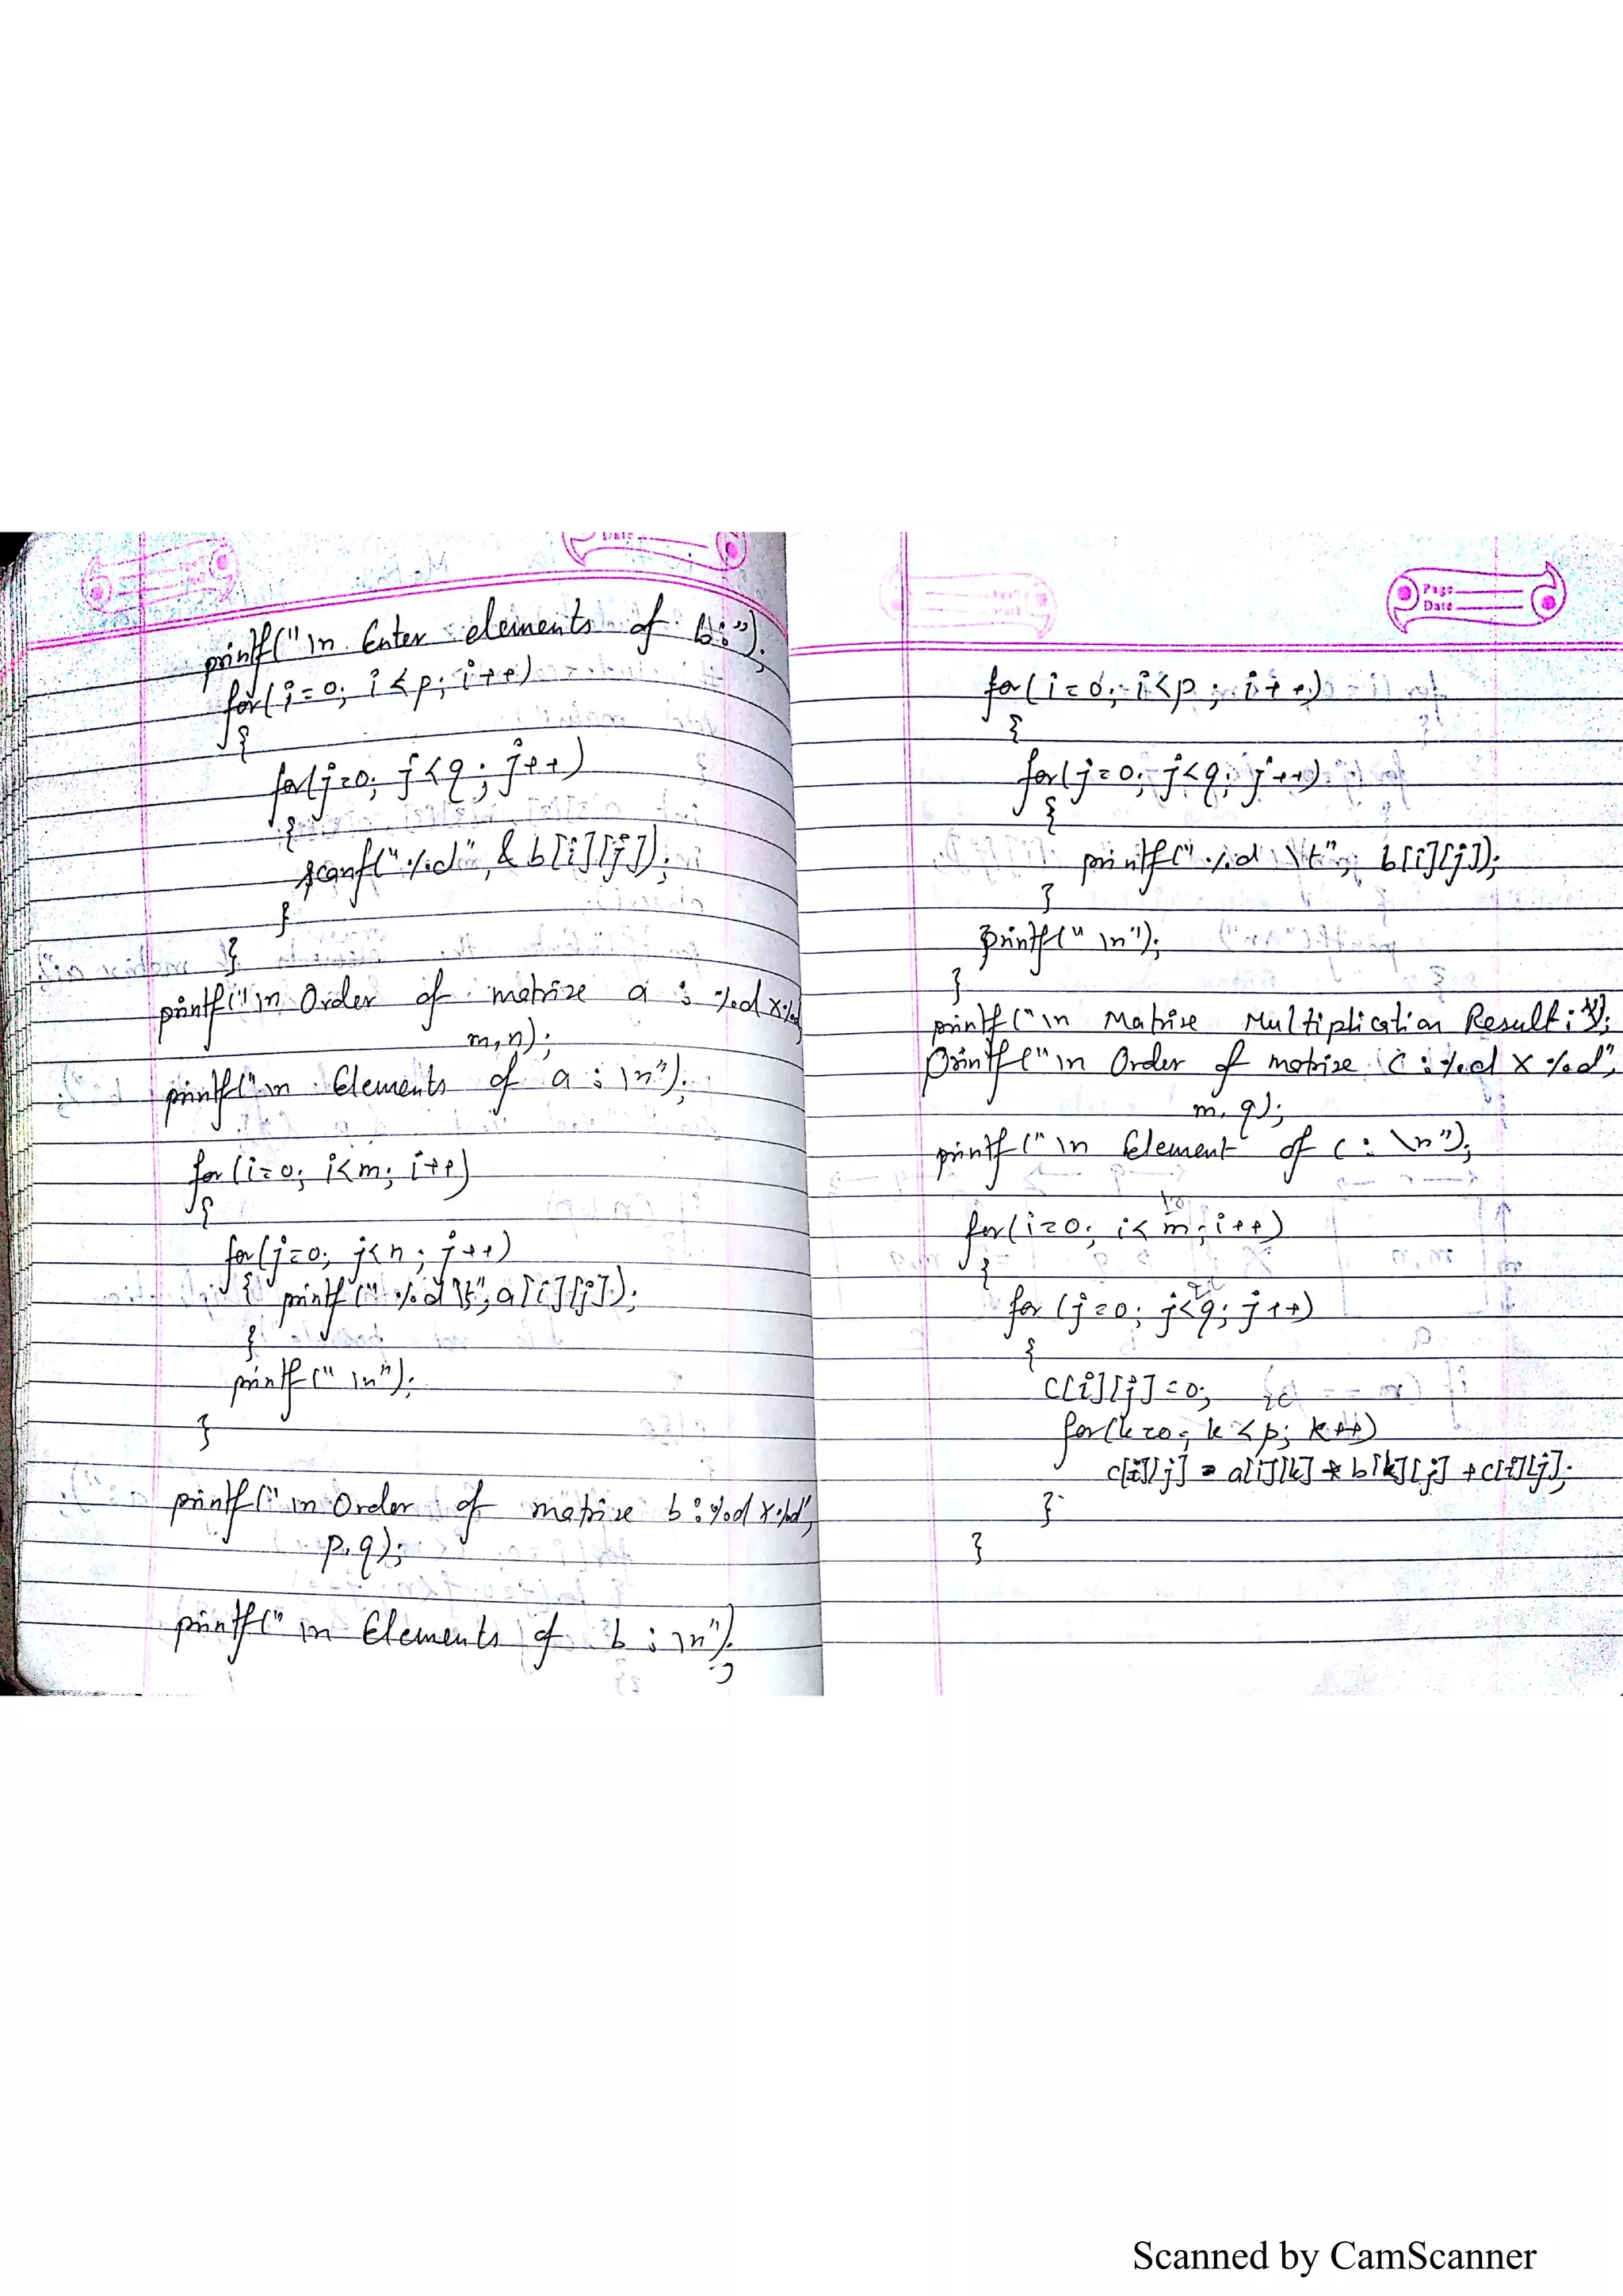 printf("\n Enter elements of b:");
for(i=0; i<p; i++)
{
for(j=0; j<q; j++)
{
scanf("%d", &b[i][j]);
}
}
printf("\n Order of matrix a : %d x %d
m,n);
printf("\n Elements of a : \n");
for(i=0; i<m; i++)
{
for(j=0; j<n; j++)
{ printf("%d\t", a[i][j]);
}
printf("\n");
}
printf("\n Order of matrix b : %d x %d",
p,q);
printf("\n Elements of b : \n");
Page
Date
for(i=0; i<p; i++)
{
for(j=0; j<q; j++)
{
printf("%d \t", b[i][j]);
}
printf("\n");
}
printf("\n Matrix Multiplication Result:");
printf("\n Order of matrix C : %d x %d",
m,q);
printf("\n Element of c : \n");
for(i=0; i<m; i++)
{
for(j=0; j<q; j++)
{
c[i][j]=0;
for(k=0; k<p; k++)
c[i][j] = a[i][k] * b[k][j] + c[i][j];
}
}
Scanned by CamScanner